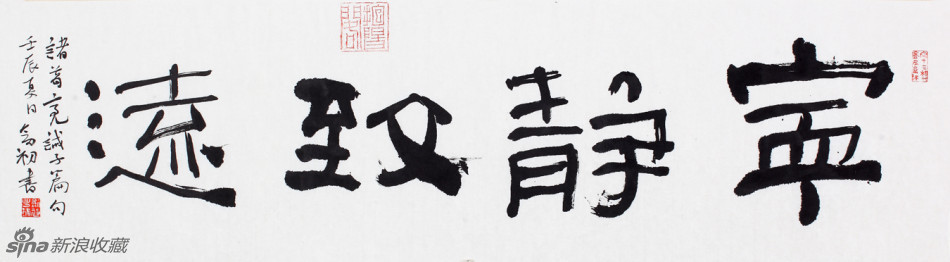 寧靜致遠
諸葛亮誡子篇句
壬辰夏日 初書
sina 新浪收藏